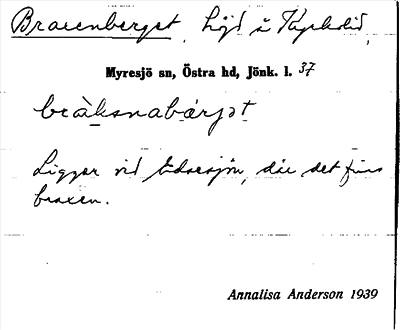 Braxenberget, höjd i Repkulid,
Myresjö sn, Östra hd, Jönk. l. 37
bràksnabærjət
Ligger vid sjön, där det fins
braxen.
Annalisa Anderson 1939